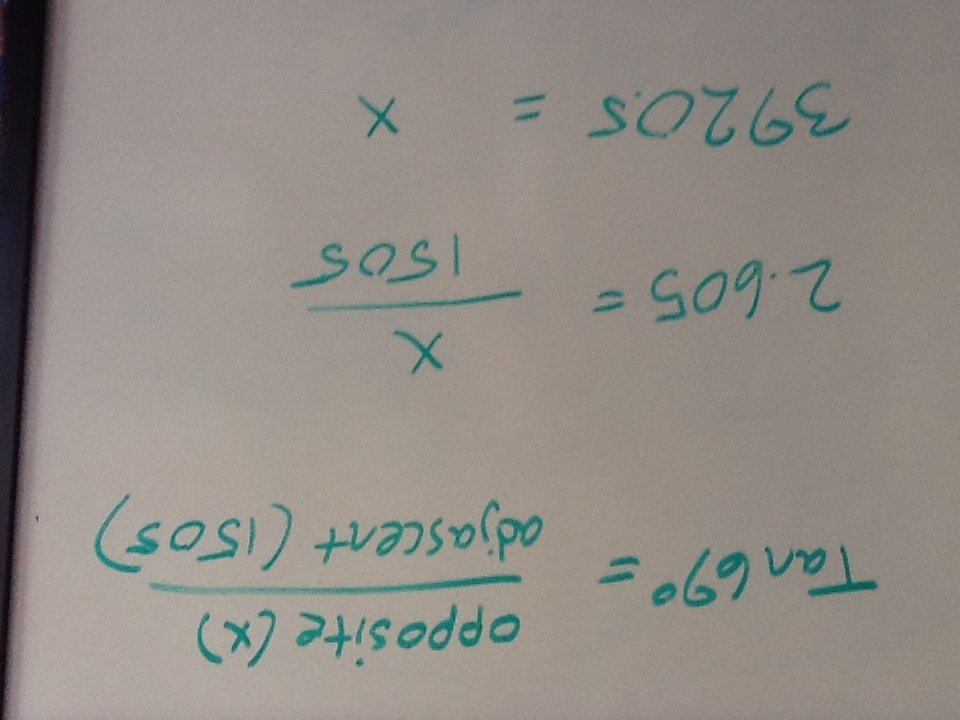 Tan 69° = opposite (x)
adjascent (1505)
2.605 = x
1505
3920.5 = x